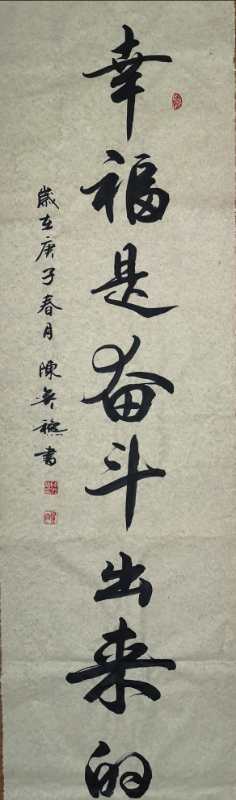 幸福是奋斗出来的
歲在庚子春月陳
書